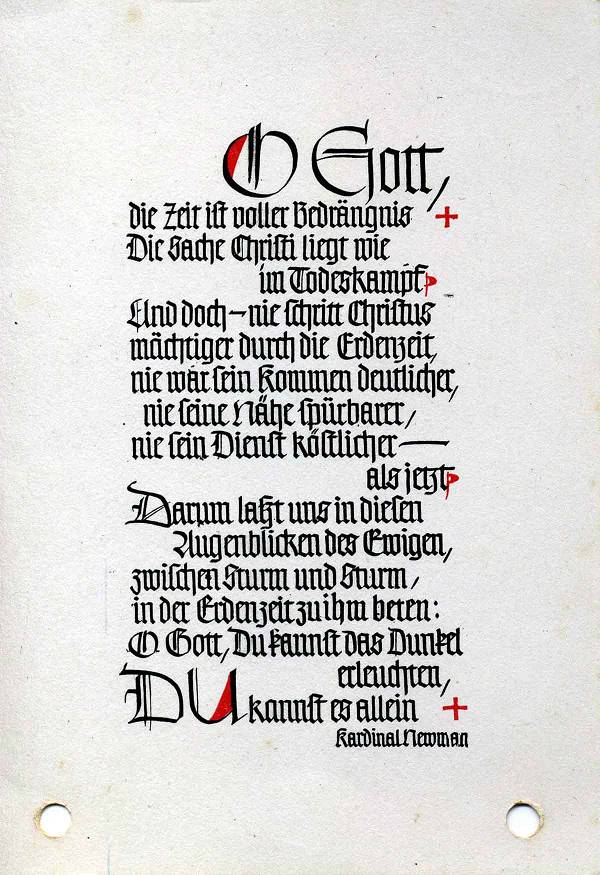 O Gott,
die Zeit ist voller Bedrängnis +
Die Sache Christi liegt wie
im Todeskampf
Und doch – nie schritt Christus
mächtiger durch die Erdenzeit,
nie war sein Kommen deutlicher,
nie seine Nähe spürbarer,
nie sein Dienst köstlicher —
als jetzt
Darum laßt uns in diesen
Augenblicken des Ewigen,
zwischen Sturm und Sturm,
in der Erdenzeit zu ihm beten:
O Gott, Du kannst das Dunkel
erleuchten,
DU kannst es allein +
Kardinal Newman